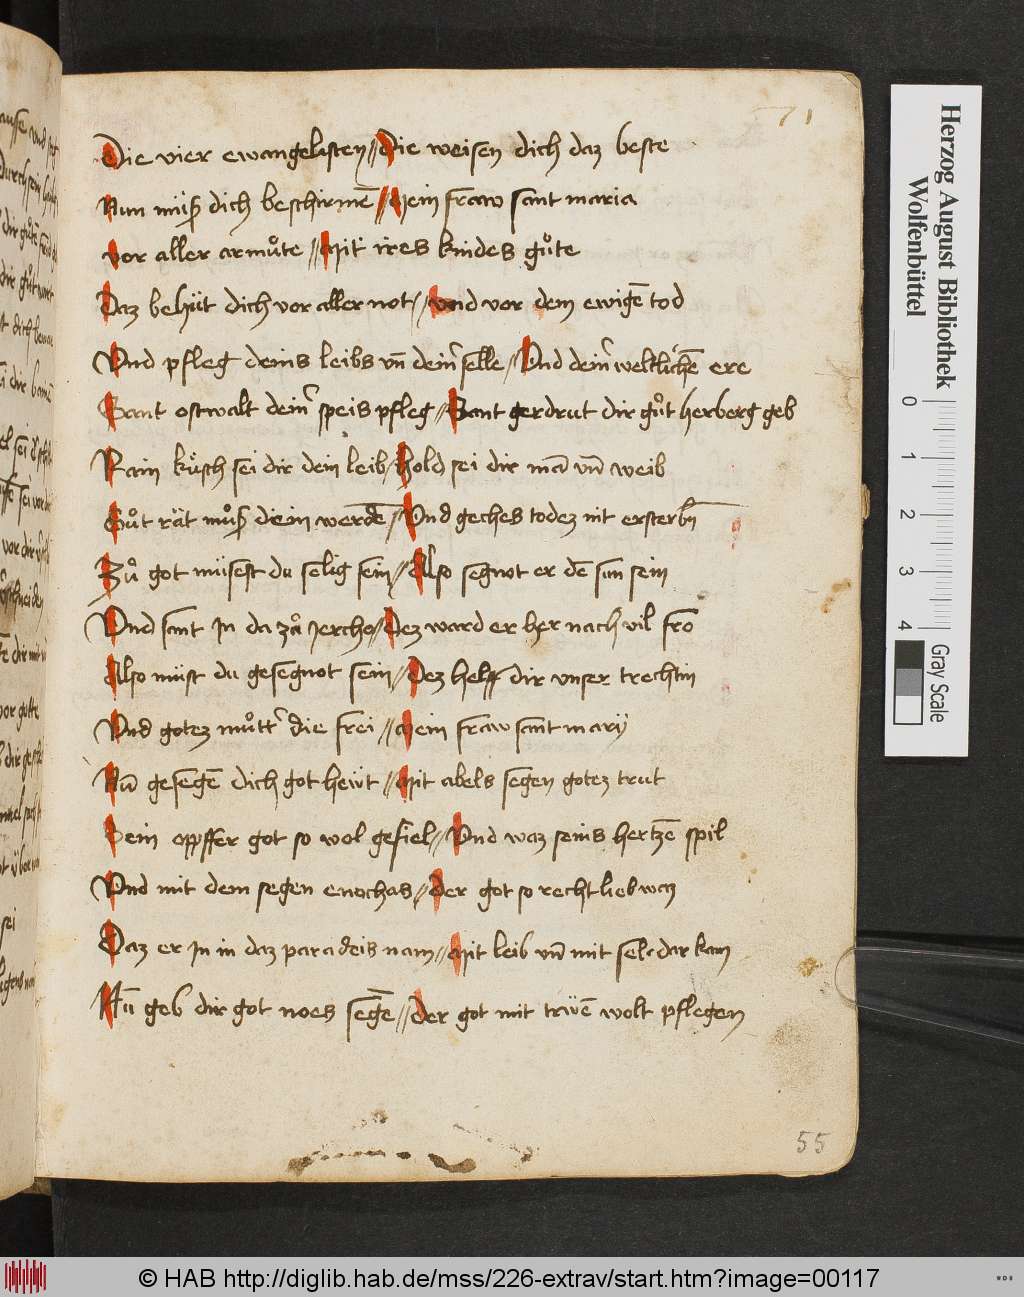 71
Die vier ewangelisten // Die weisen dich daz beste
Nun müß dich beschirmē // Mein fraw sant maria
vor aller armuͦte // Mit ires kindes guͦte
Daz behüt dich vor aller not // vnd vor dem ewigē tod
Vnd pfleg deins leibs vn̄ deinˀ selle // Vnd deinˀ weltlichē ere
Sant ostwalt deinˀ speis pfleg // Sant gerdrut dir guͦt herberg geb
Rain küsch sei dir dein leib // Hold sei dir mā vn̄ weib
Guͦt rät muͦß dein werdē // Vnd geches todez nit ersterbn̄
Zuͦ got müsest du selig sein // Also segnot er dē sun sein
Vnd sant in da zuͦ jercho // Dez ward er her nach vil fro
Also müst du gesegnot sein // Dez helff dir vnser trechtin
Vnd gotez muͦttˀ die frei // Mein fraw sant marÿ
Nū gesegē dich got heüt // Mit abels segen gotez trut
Sein opffer got so wol gefiel // Vnd waz seins hertzē spil
Vnd mit dem segen enochas // Der got so recht lieb waz
Daz er in in daz paradeis nam // Mit leib vn̄ mit sel dar kam
Nū geb dir got noes segē // Der got mit trüē wolt pflegen
55
Herzog August Bibliothek
Wolfenbüttel
0 1 2 3 4
Gray Scale
© HAB http://diglib.hab.de/mss/226-extrav/start.htm?image=00117